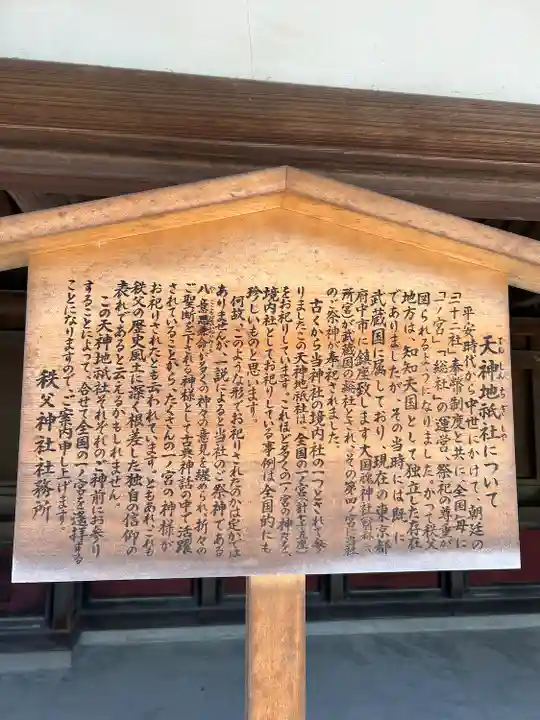 天神地祇社について
てんじんちぎしゃ
平安時代から中世にかけて、朝廷の
「二十二社」奉幣制度と共に、全国毎に
「一ノ宮」「総社」の運営、祭祀の尊重が
図られるようになりました。かつて秩父
地方は、知知夫国として独立した存在
でありましたが、その当時には既に
武蔵国に属しており、現在の東京都
府中市に鎮座致します大國魂神社(別称六
所宮)が武蔵国の総社とされ、各々の第四ノ宮に当社
のご祭神が奉祀されました。
古くから当神社の境内社の一つとされて参
りました、この天神地祇社は、全国の一ノ宮(計七十五座)
をお祀りしています。これほど多くの一ノ宮の神さまを、
境内社としてお祀りしている事例は全国的にも
珍しいものと思います。
何故、このような形でお祀りされたのかは定かでは
ありませんが、一説によると当社のご祭神である
八意思兼命が多くの神々の意見を纏められ、折々の
ご聖断を下される神様として古典神話の中で活躍
されていることから、たくさんの一ノ宮の神様が
お祀りされたとも云われています。ともあれ、これも
秩父の歴史風土に深く根差した独自の信仰の
表れであると云えるかもしれません。
この天神地祇社それぞれのご神前にお参り
することによって、合せて全国の一ノ宮を遥拝する
ことになりますので、ご案内申し上げます。
秩父神社社務所